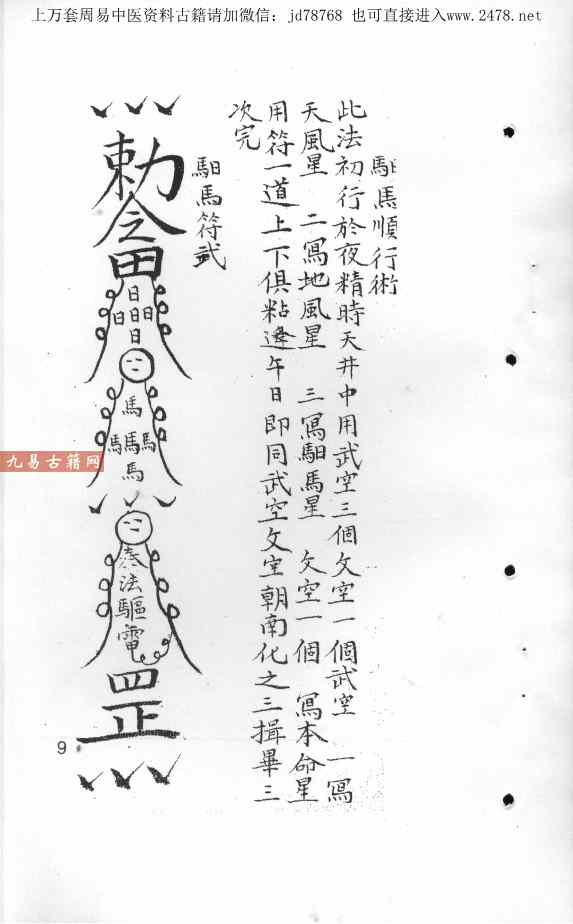 上万套周易中医资料古籍请加微信：jd78768 也可直接进入www.2478.net
馹馬順行術
此法初行於夜精時天井中用武空三個文空一個武空 一寫
天風星 二寫地風星 三寫馹馬星 文空一個 寫本命星
用符一道上下俱粘逢午日即同武空文空朝南化之三揖畢三
次完
馹馬符武
勅令
田
日
日日日
日
馬
馬馬馬
馬
奏法驅電
罡
九易古籍网
9